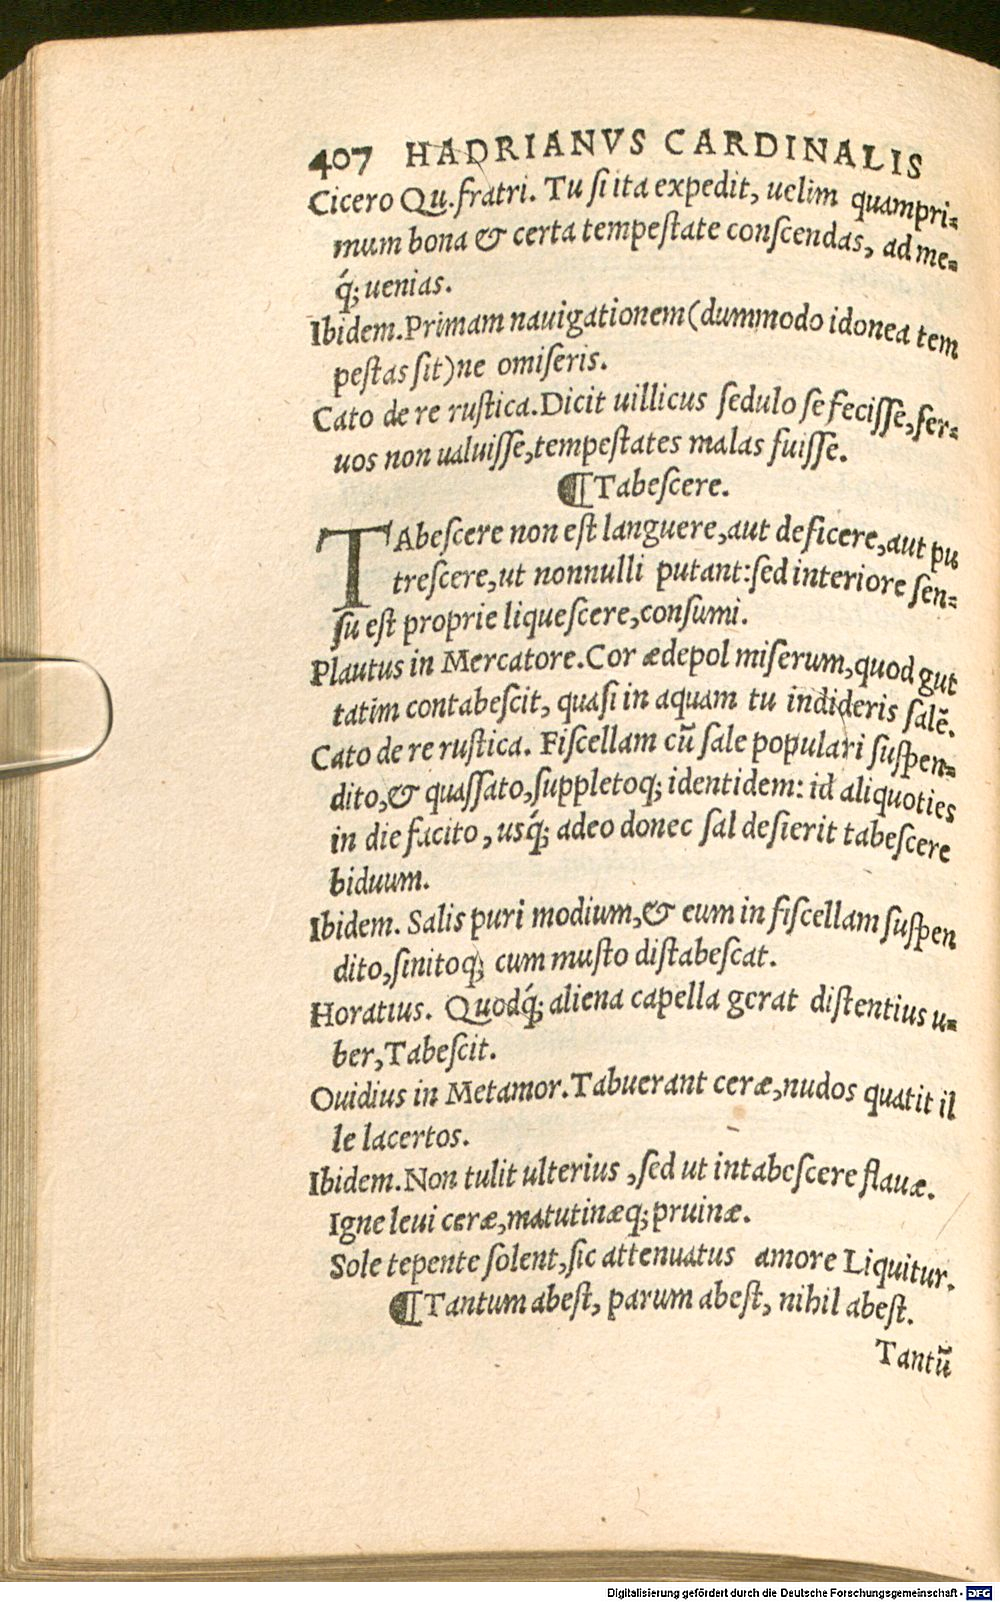 407 HADRIANVS CARDINALIS
Cicero Qu. fratri. Tu ſi ita expedit, uelim quampri=
mum bona & certa tempeſtate conſcendas, ad me=
q́; uenias.
Ibidem. Primam nauigationem (dummodo idonea tem
peſtas ſit) ne omiſeris.
Cato de re ruſtica. Dicit uillicus ſedulo ſe feciſſe, ſer=
uos non ualuiſſe, tempeſtates malas fuiſſe.
¶ Tabeſcere.
TAbeſcere non eſt languere, aut deficere, aut pu
treſcere, ut nonnulli putant: ſed interiore ſen=
ſu eſt proprie liqueſcere, conſumi.
Plautus in Mercatore. Cor ædepol miſerum, quod gut
tatim contabeſcit, quaſi in aquam tu indideris ſalē.
Cato de re ruſtica. Fiſcellam cū ſale populari ſuſpen=
dito, & quaſſato, ſuppletoq; identidem: id aliquoties
in die facito, uſq́; adeo donec ſal deſierit tabeſcere
biduum.
Ibidem. Salis puri modium, & eum in fiſcellam ſuſpen
dito, ſinitoq; cum muſto diſtabeſcat.
Horatius. Quodq́; aliena capella gerat diſtentius u=
ber, Tabeſcit.
Ouidius in Metamor. Tabuerant ceræ, nudos quatit il
le lacertos.
Ibidem. Non tulit ulterius, ſed ut intabeſcere flauæ.
Igne leui ceræ, matutinæq; pruinæ.
Sole tepente ſolent, ſic attenuatus amore Liquitur.
¶ Tantum abeſt, parum abeſt, nihil abeſt.
Tantū
Digitalisierung gefördert durch die Deutsche Forschungsgemeinschaft - DFG